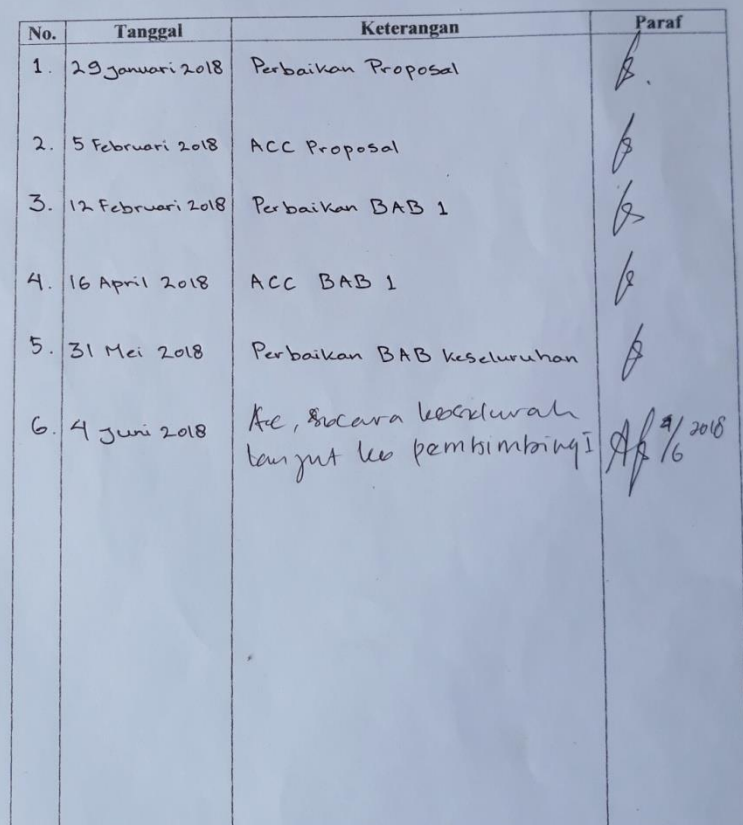 No. Tanggal Keterangan Paraf
1. 29 Januari 2018 Perbaikan Proposal
2. 5 Februari 2018 ACC Proposal
3. 12 Februari 2018 Perbaikan BAB 1
4. 16 April 2018 ACC BAB 1
5. 31 Mei 2018 Perbaikan BAB keseluruhan
6. 4 Juni 2018 Acc, secara keseluruah
lanjut ke pembimbing I 4/6 2018